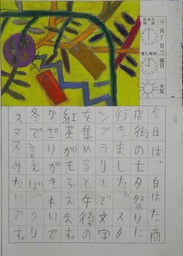 今日は、白はた商
店街の七夕祭りに
行きました。スタ
ンプラリーで文字
を集めると午後の
紅茶がもらえます。
かざりがきれいで
冬で言えば、クリ
スマスみたいです。